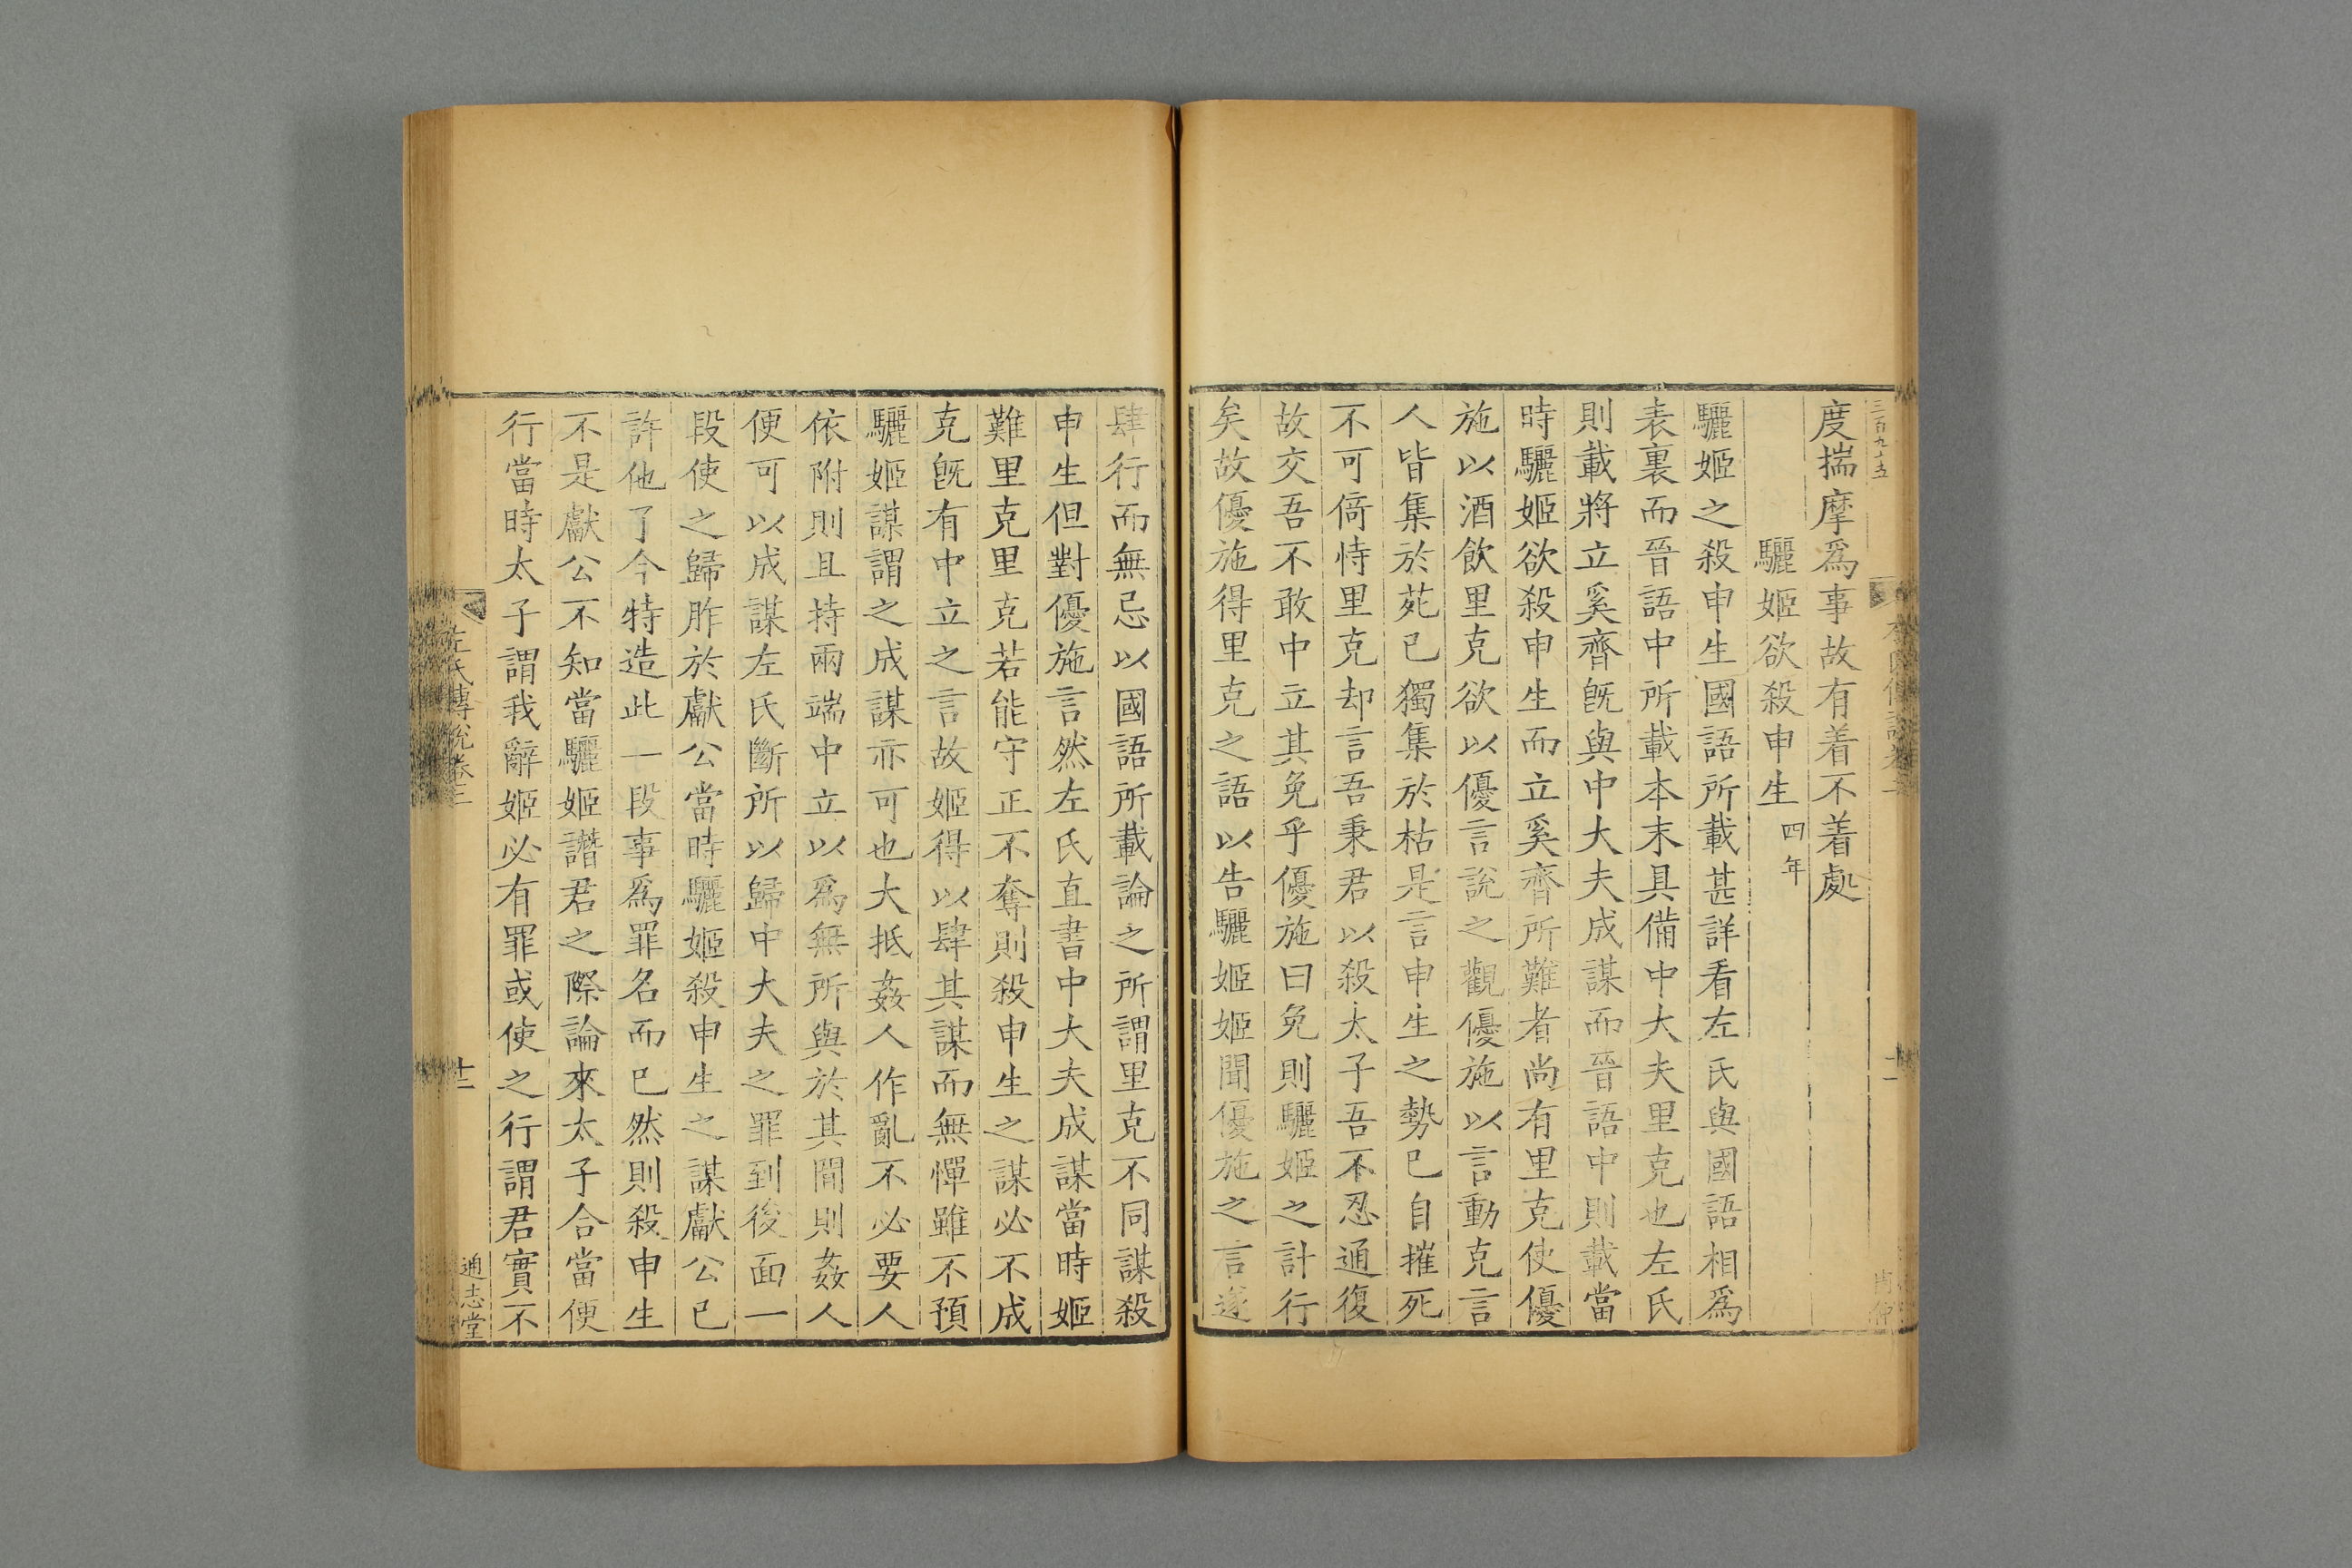 三百九十五
度揣摩爲事故有着不着處
驪姬欲殺申生 四年
驪姬之殺申生國語所載甚詳看左氏與國語相爲
表裏而晉語中所載本末具備中大夫里克也左氏
則載將立奚齊旣與中大夫成謀而晉語中則載當
時驪姬欲殺申生而立奚齊所難者尚有里克使優
施以酒飲里克欲以優言說之觀優施以言動克言
人皆集於苑已獨集於枯是言申生之勢已自摧死
不可倚恃里克却言吾秉君以殺太子吾不忍通復
故交吾不敢中立其免乎優施曰免則驪姬之計行
矣故優施得里克之語以告驪姬姬聞優施之言遂
肆行而無忌以國語所載論之所謂里克不同謀殺
申生但對優施言然左氏直書中大夫成謀當時姬
難里克里克若能守正不奪則殺申生之謀必不成
克旣有中立之言故姬得以肆其謀而無憚雖不預
驪姬謀謂之成謀亦可也大抵姦人作亂不必要人
依附則且持兩端中立以爲無所與於其間則姦人
便可以成謀左氏斷所以歸中大夫之罪到後面一
段使之歸胙於獻公當時驪姬殺申生之謀獻公已
許他了今特造此一段事爲罪名而已然則殺申生
不是獻公不知當驪姬譖君之際論來太子合當便
行當時太子謂我辭姬必有罪或使之行謂君實不
左氏傳說卷三
十二
通志堂